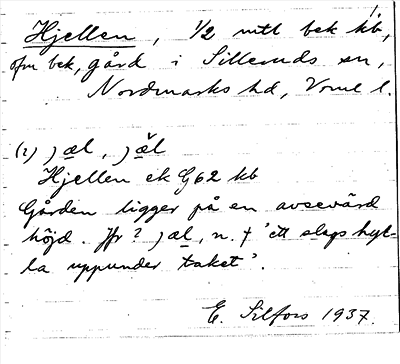 Hjellen, 1/2 mtl bek kb,
ofm bek, gård i Silleruds sn,
Nordmarks hd, Vrml l.
(2) jæl, jæ̆l
Hjellen ek G62 kb
Gården ligger på en avsevärd
höjd. Jfr? jæl, n. f 'ett slags hyl-
la uppunder taket'.
E. Silfors 1937.